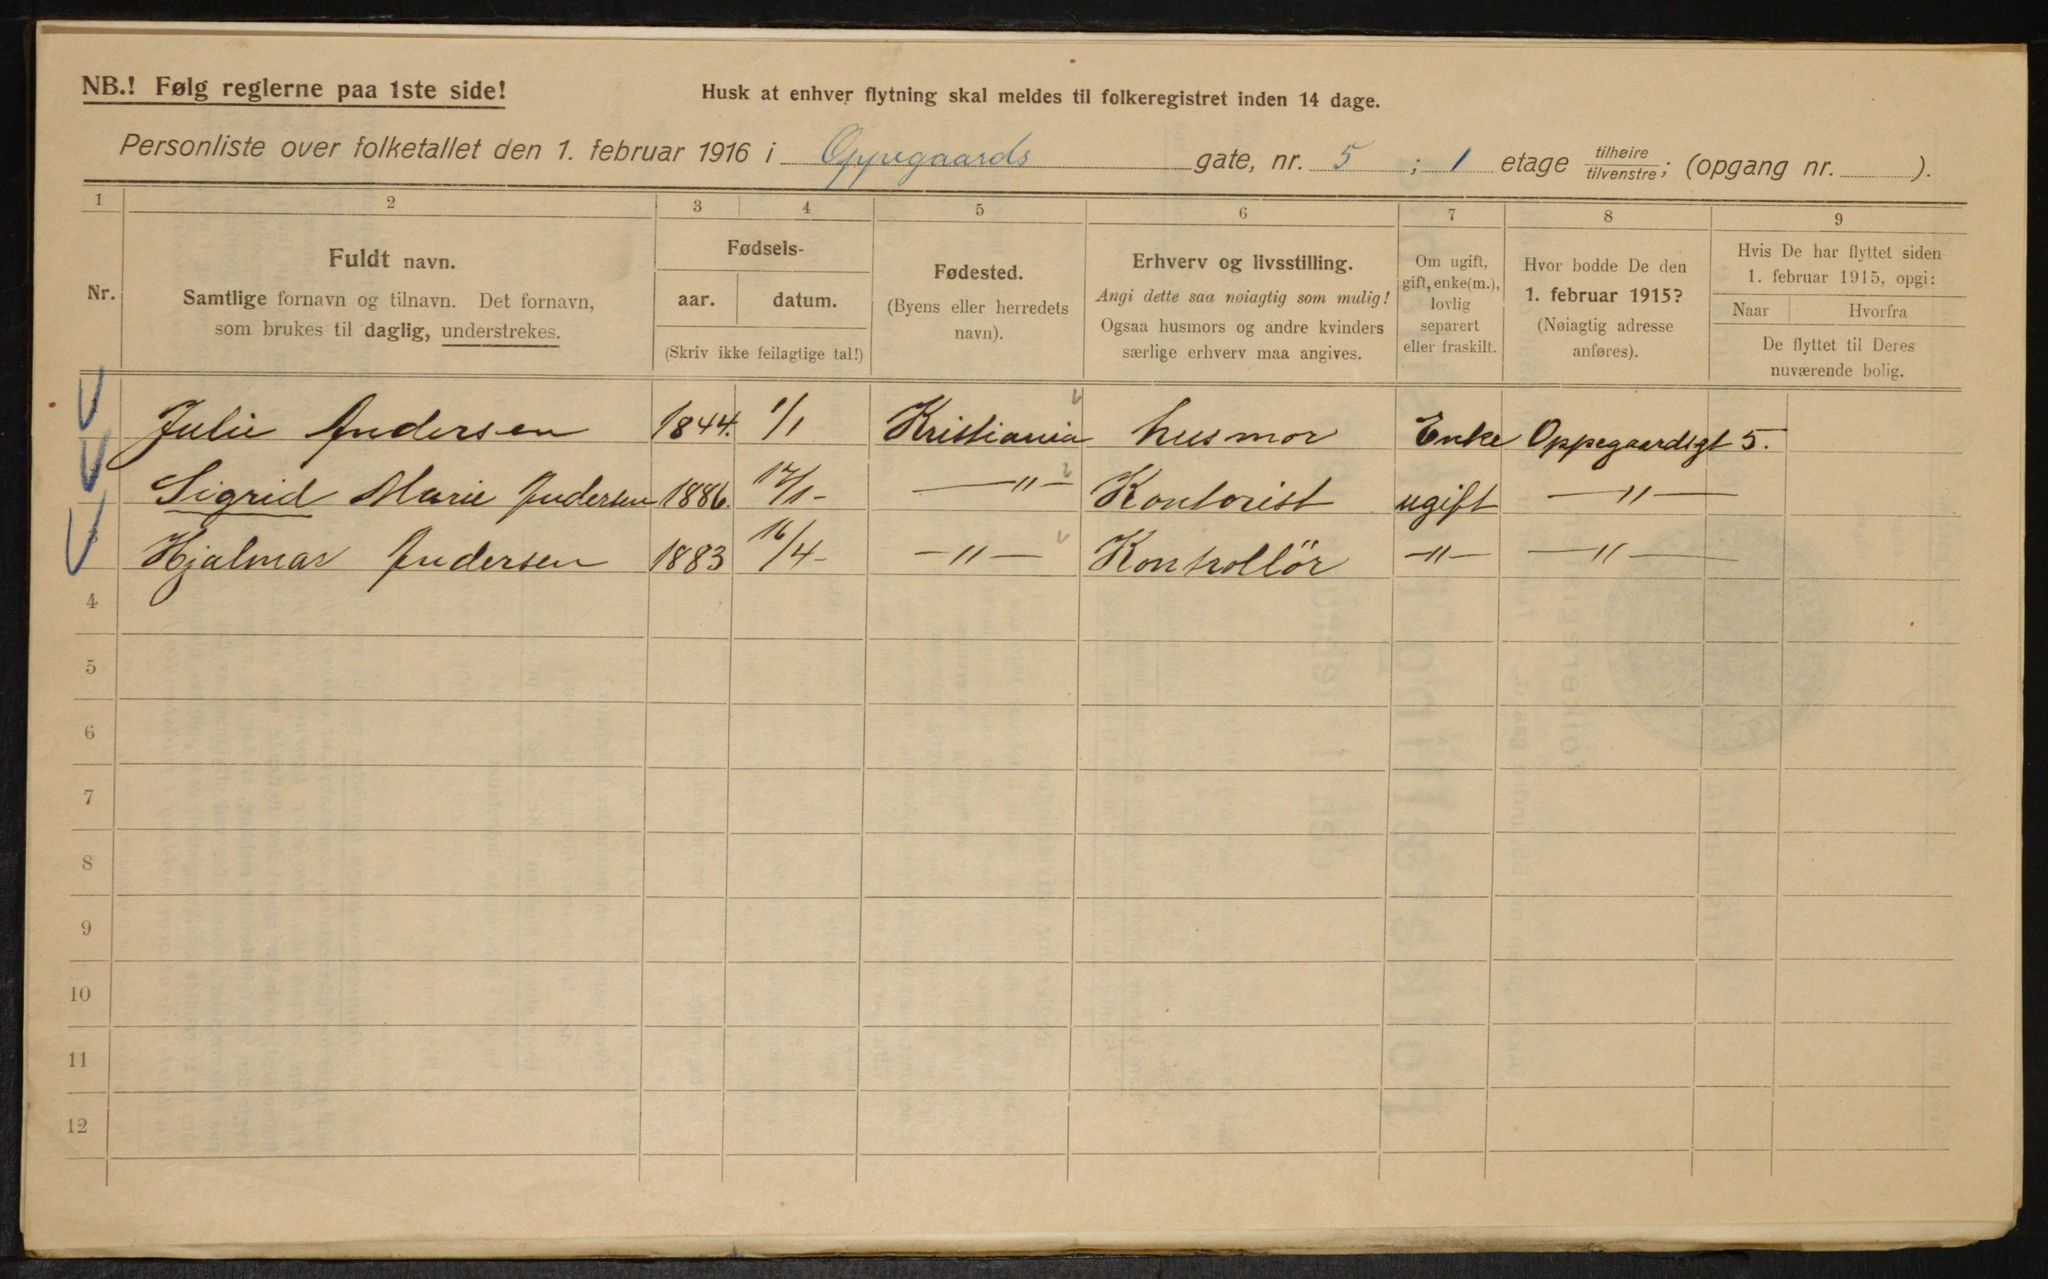 NB.! Følg reglerne paa 1ste side!
Husk at enhver flytning skal meldes til folkeregistret inden 14 dage.
Personliste over folketallet den 1. februar 1916 i Oppegaards gate, nr. 5 ; 1 etage tilhøire / tilvenstre ; (opgang nr. ).
1 2 3 4 5 6 7 8 9
Nr.
Fuldt navn.
Samtlige fornavn og tilnavn. Det fornavn,
som brukes til daglig, understrekes.
Fødsels-
aar. datum.
(Skriv ikke feilagtige tal!)
Fødested.
(Byens eller herredets
navn).
Erhverv og livsstilling.
Angi dette saa nøiagtig som mulig!
Ogsaa husmors og andre kvinders
særlige erhverv maa angives.
Om ugift,
gift, enke(m.),
lovlig
separert
eller fraskilt.
Hvor bodde De den
1. februar 1915?
(Nøiagtig adresse
anføres).
Hvis De har flyttet siden
1. februar 1915, opgi:
Naar Hvorfra
De flyttet til Deres
nuværende bolig.
Julie Andersen 1844. 1/1 Kristiania husmor Enke Oppegaardsgt 5.
Sigrid Marie Andersen 1886. /1- —"— Kontorist ugift —"—
Hjalmar Andersen 1883 16/4- —"— Kontrollör —"— —"—
4
5
6
7
8
9
10
11
12